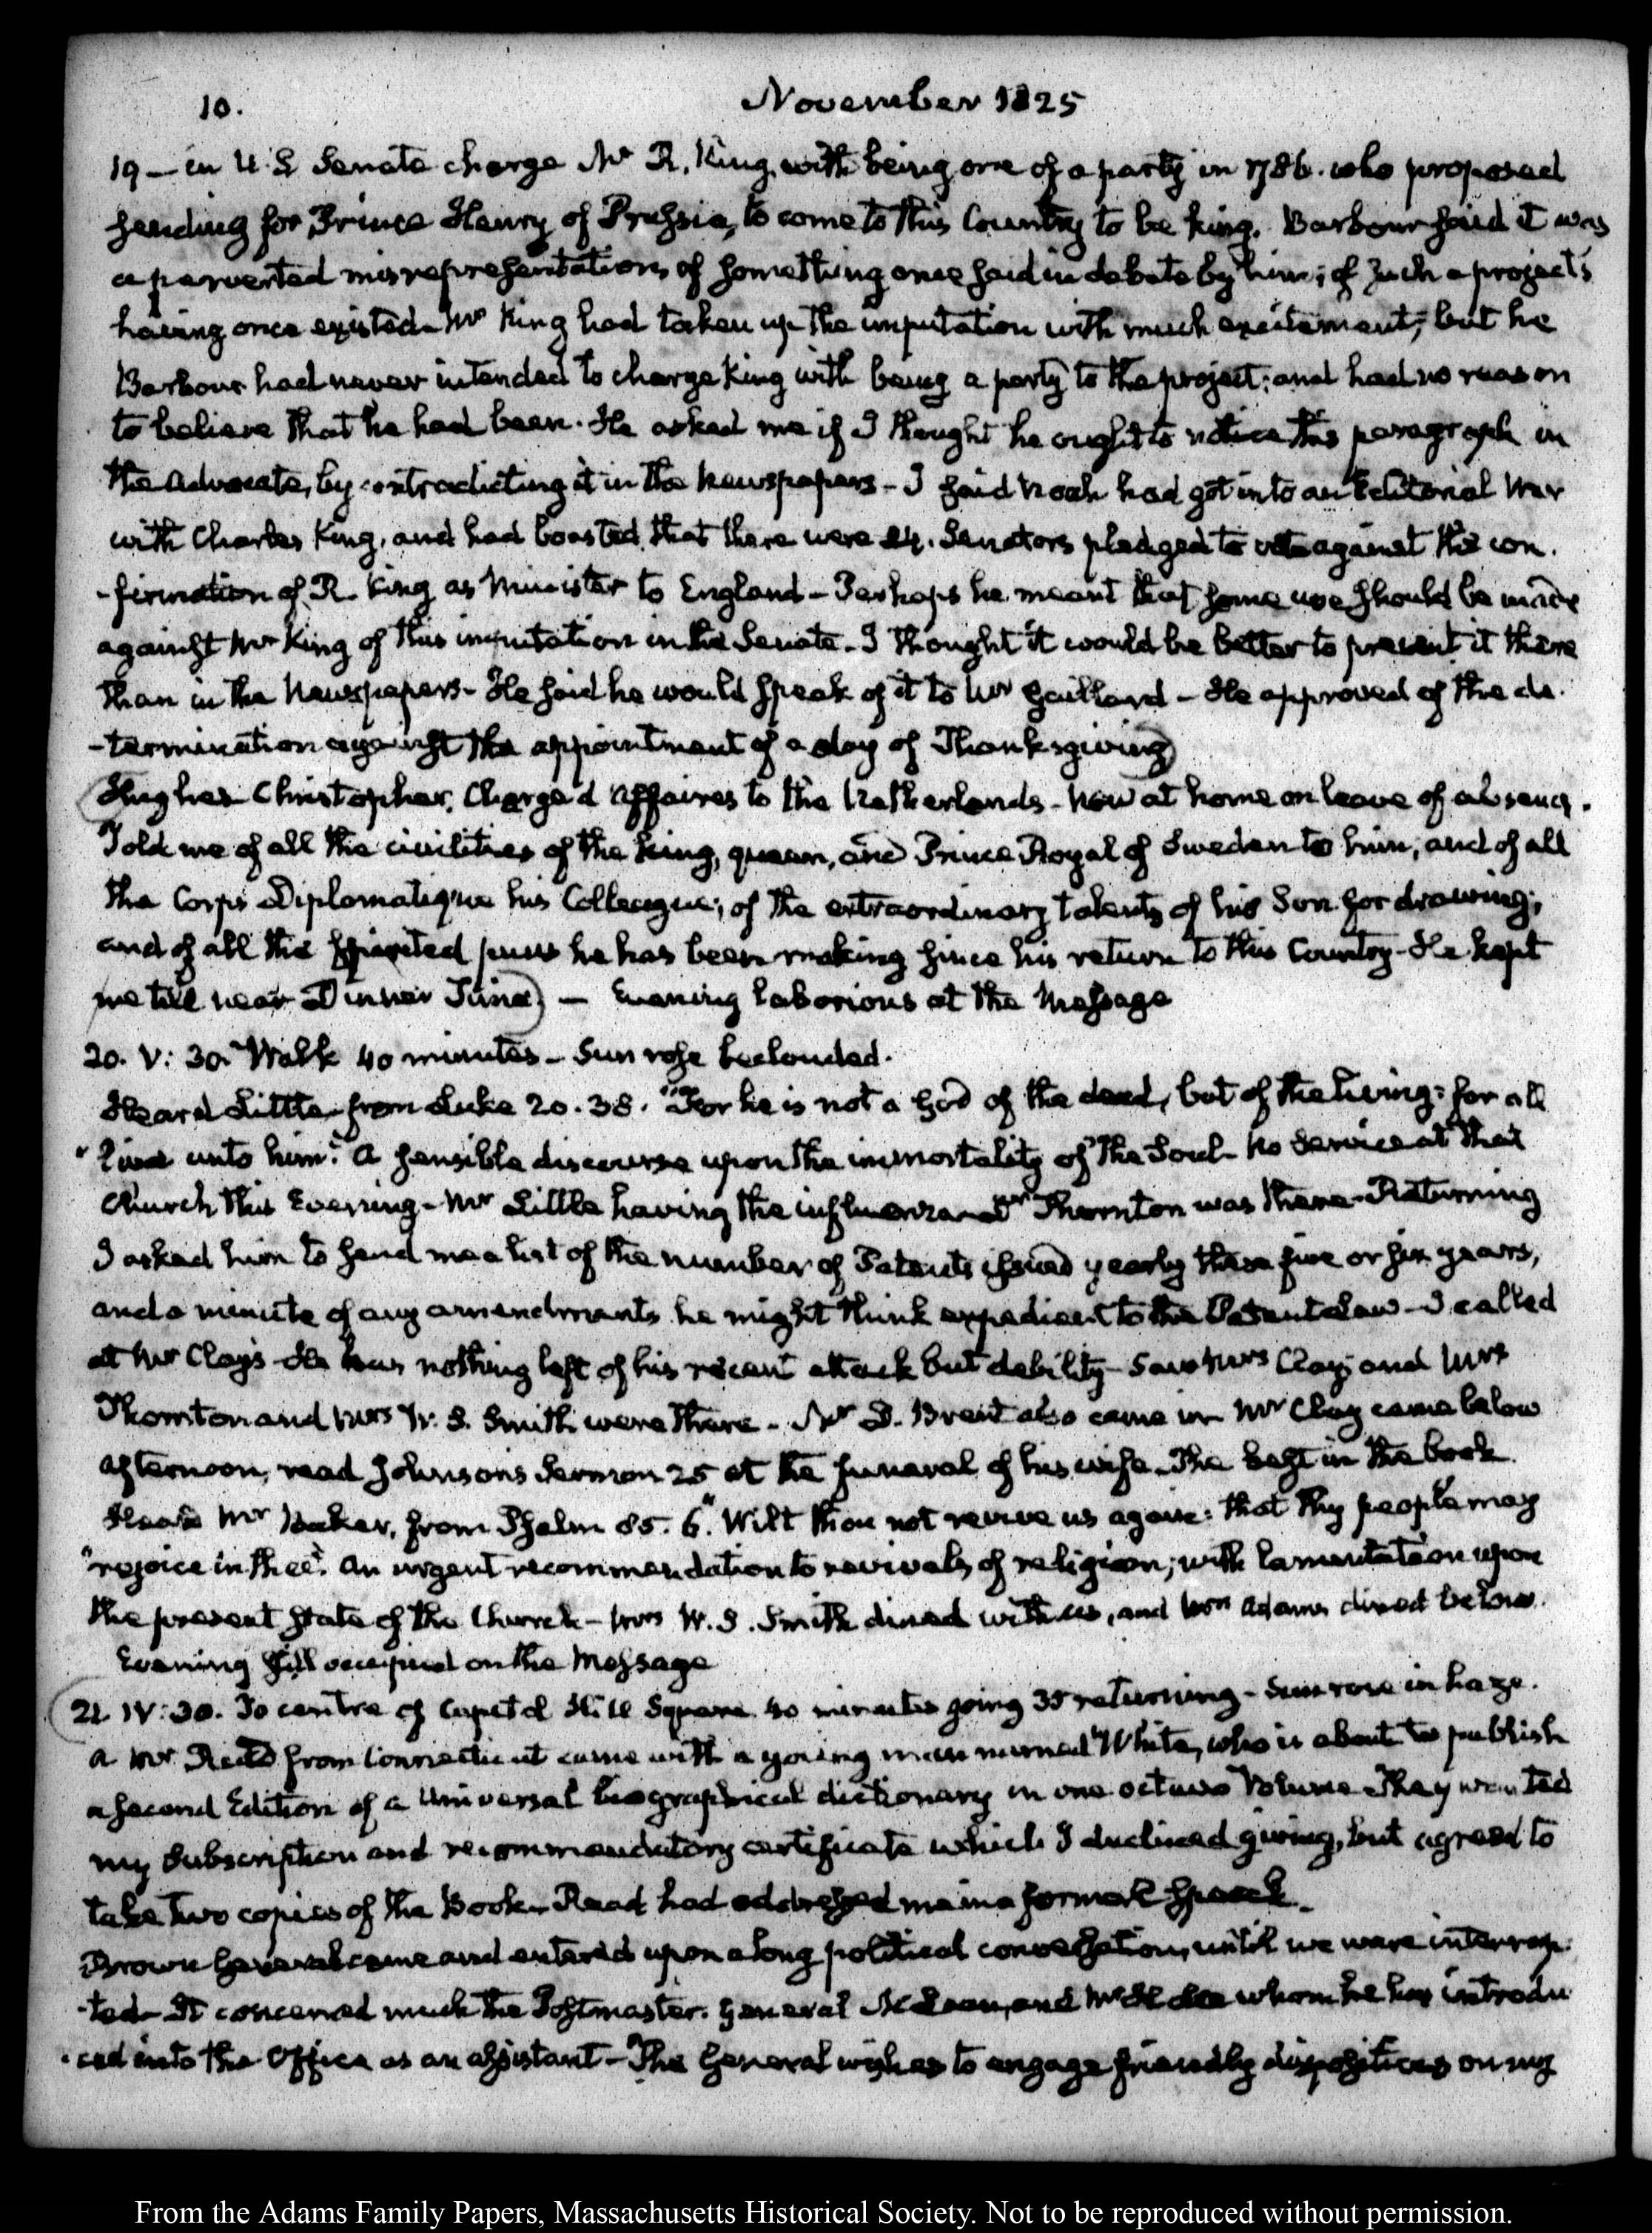 10. November 1825
19 — in U.S Senate charge Mr R. King, with being one of a party in 1786. who proposed
sending for Prince Henry of Prussia, to come to this Country to be king. Barbour said it was
a perverted misrepresentation of something once said in debate by him; of such a project's
having once existed — Mr King had taken up the imputation with much excitement; but he
Barbour had never intended to charge King with being a party to the project; and had no reason
to believe that he had been. He asked me if I thought he ought to notice this paragraph in
the Advocate, by contradicting it in the Newspapers — I said Noah had got into an Editorial War
with Charles King, and had boasted, that there were 24. Senators pledged to vote against the con-
-firmation of R. King as Minister to England — Perhaps he meant that some use should be made
against Mr King of this imputation in the Senate. I thought it would be better to present it there
than in the Newspapers — He said he would speak of it to Mr Gaillard — He approved of the de-
-termination against the appointment of a day of Thanksgiving)
(Hughes Christopher, Chargé d'affaires to the Netherlands — now at home on leave of absence.
Told me of all the civilities of the King, queen, and Prince Royal of Sweden to him; and of all
the Corps Diplomatique his Colleagues; of the extraordinary talents of his Son for drawing;
and of all the puns he has been making since his return to this Country — He kept
me till near Dinner Time) — Evening laborious at the Message
20. V: 30. Walk 40 minutes — Sun rose beclouded.
Heard Little from Luke 20. 38. "For he is not a God of the dead, but of the living: for all
"live unto him." A sensible discourse upon the immortality of the Soul — No Service at that
Church this Evening — Mr Little having the influenza — Dr Thornton was there — Returning
I asked him to send me a list of the number of Patents issued yearly these five or six years,
and a minute of any amendments he might think expedient to the Patent Law — I called
at Mr Clay's — He has nothing left of his recent attack but debility — Saw Mrs Clay; and Mrs
Thornton and Mrs W. S. Smith were there — Mr D. Brent also came in — Mr Clay came below
afternoon, read Johnson's Sermon 25 at the funeral of his wife. The best in the book.
Heard Mr Baker, from Psalm 85. 6. "Wilt thou not revive us again: that thy people may
"rejoice in thee". An urgent recommendation to revivals of religion; with lamentation upon
the present state of the Church — Mrs W. S. Smith dined with us, and Adams dined below.
Evening still occupied on the Message
(21. IV: 30. To centre of Capitol Hill Square. 40 minutes going 35 returning — Sun rose in haze.
A Mr Read from Connecticut came with a young man named White, who is about to publish
a second Edition of a Universal biographical dictionary in one octavo Volume — They wanted
my subscription and recommendatory certificate which I declined giving, but agreed to
take two copies of the Book — Read had addressed me in a formal speech.
Brown General came and entered upon a long political conversation, until we were interrup-
-ted — It concerned much the Postmaster. General McLean, and Mr whom he has introdu
-ced into the Office as an assistant — The General wishes to engage friendly dispositions on my
From the Adams Family Papers, Massachusetts Historical Society. Not to be reproduced without permission.